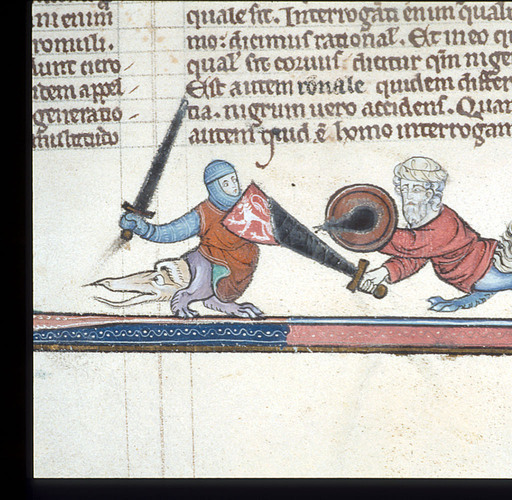 ni enim
romuli.
dunt cicro
item appel
generatio
militudo
quale sit. Interrogati enim quali
mo: dicimus rational. Et in eo qu
qual sit coruus: dicitur qm nige
Est autem ronale quidem differ
tia. nigrum uero accidens. Quan
autem quid ē homo interrogam